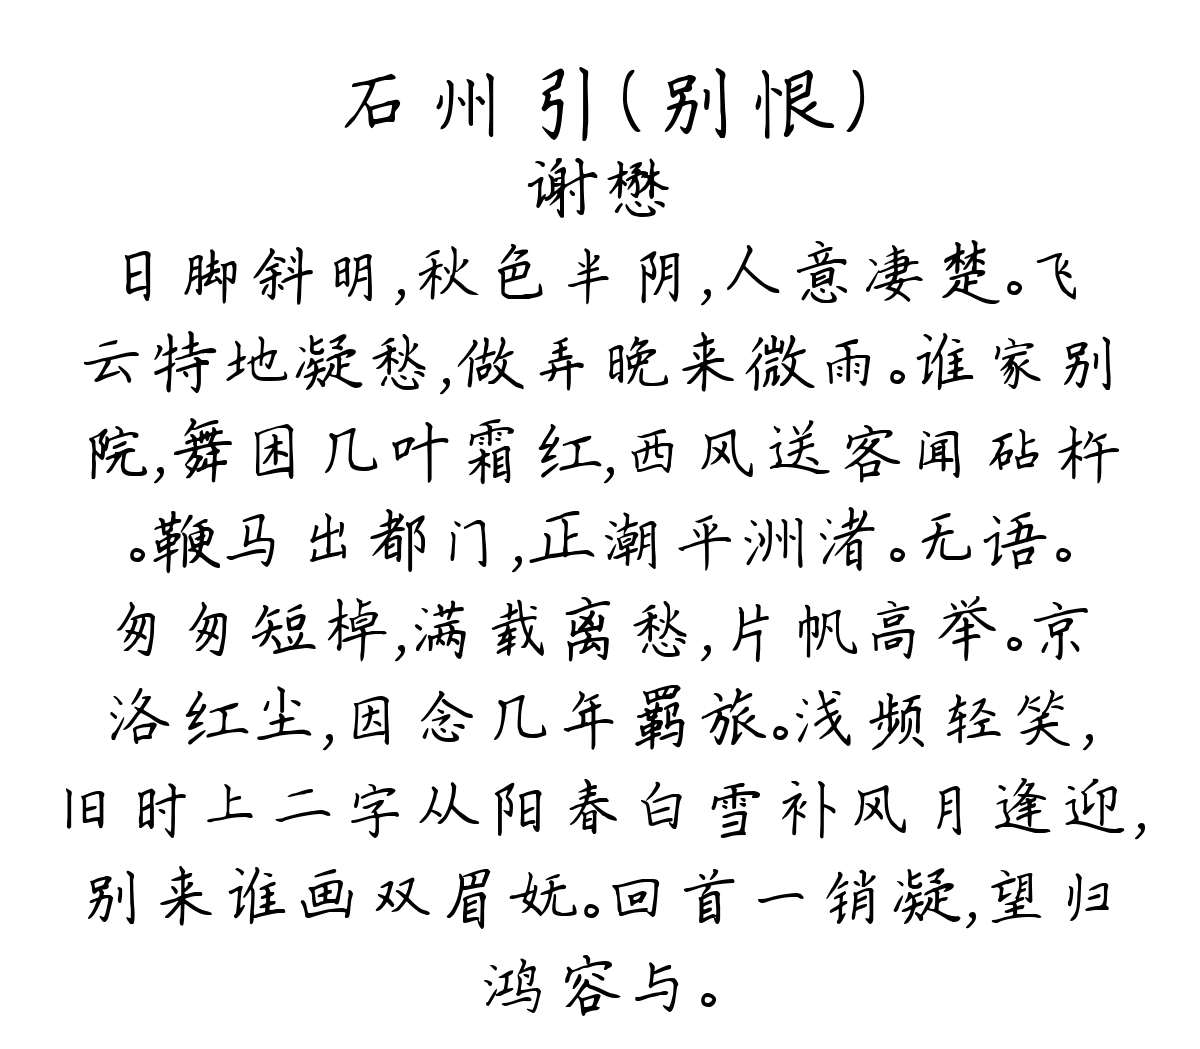 石州引(别恨)
谢懋
日脚斜明,秋色半阴,人意凄楚。飞
云特地凝愁,做弄晚来微雨。谁家别
院,舞困几叶霜红,西风送客闻砧杵
。鞭马出都门,正潮平洲渚。无语。
匆匆短棹,满载离愁,片帆高举。京
洛红尘,因念几年羁旅。浅频轻笑,
旧时上二字从阳春白雪补风月逢迎,
别来谁画双眉妩。回首一销凝,望归
鸿容与。